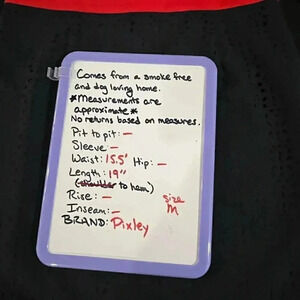 Comes from a smoke free
and dog loving home.
*Measurements are
approximate*
No returns based on measures.
Pit to pit: –
Sleeve: –
Waist: 15.5" Hip: –
Length: 19"
(shoulder to hem)
Rise: –
size
M
Inseam: –
BRAND: Pixley